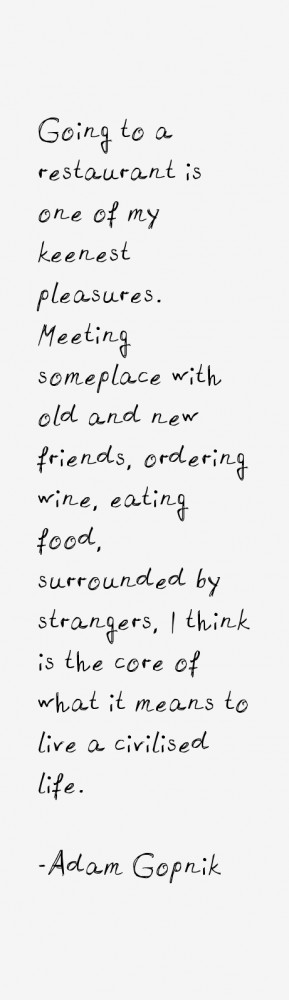 Going to a
restaurant is
one of my
keenest
pleasures.
Meeting
someplace with
old and new
friends, ordering
wine, eating
food,
surrounded by
strangers, I think
is the core of
what it means to
live a civilised
life.
-Adam Gopnik